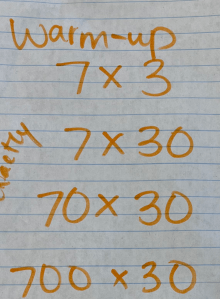 Warm-up
7 x 3
7 x 30
70 x 30
700 x 30